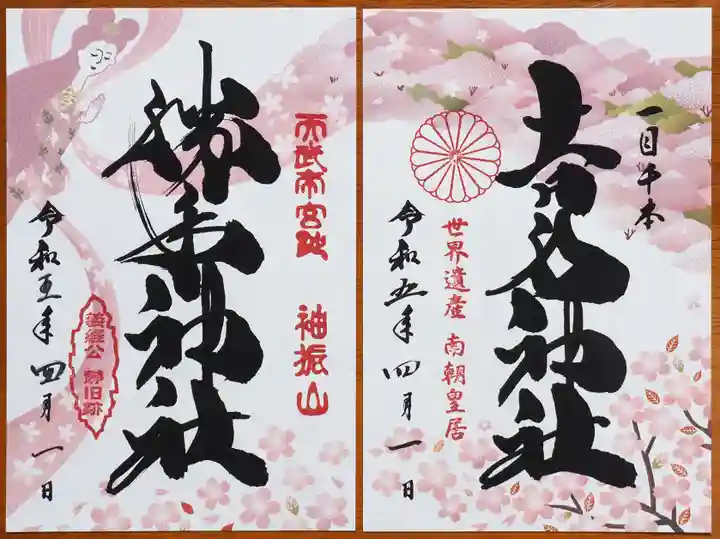 一目千本
吉水神社
世界遺産 南朝皇居
令和五年四月一日
天武帝宮地 袖振山
勝手神社
義経公 静旧跡
令和五年四月一日